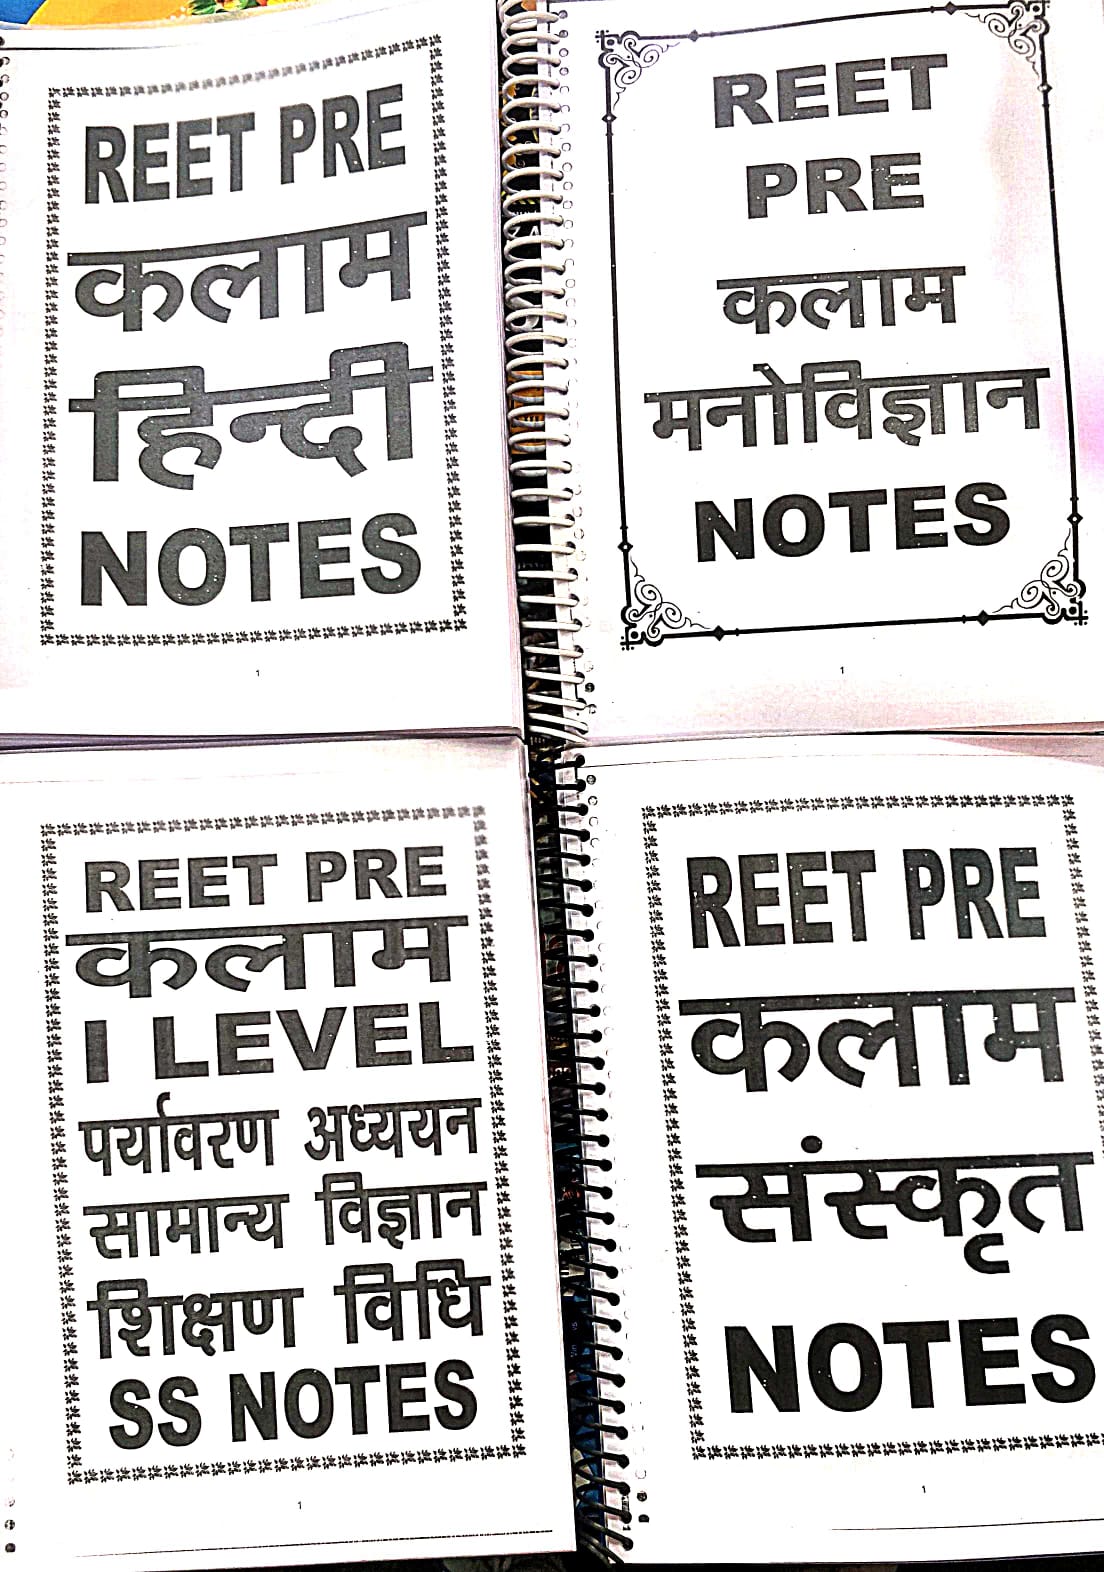 REET PRE
कलाम
हिन्दी
NOTES
1
REET
PRE
कलाम
मनोविज्ञान
NOTES
1
REET PRE
कलाम
I LEVEL
पर्यावरण अध्ययन
सामान्य विज्ञान
शिक्षण विधि
SS NOTES
1
REET PRE
कलाम
संस्कृत
NOTES
1